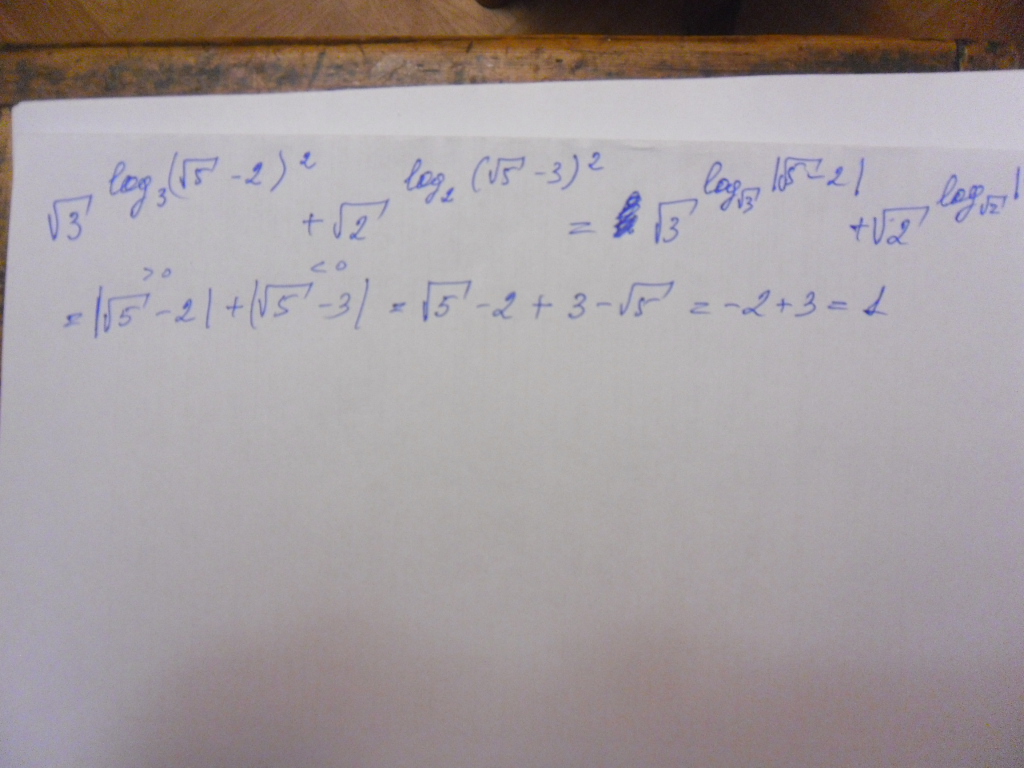 √3^log₃(√5 - 2)² + √2^log₂(√5 - 3)² = √3^log_√3|√5 - 2| + √2^log_√2|
= |√5 - 2| + |√5 - 3| = √5 - 2 + 3 - √5 = -2 + 3 = 1
>0 <0